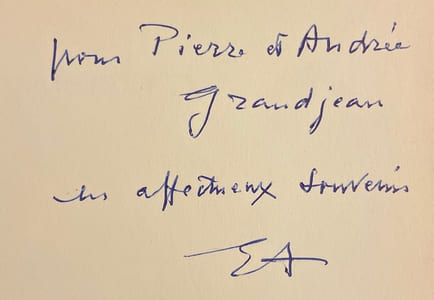 pour Pierre et Andrée
Grandjean
en affectueux souvenir
EA